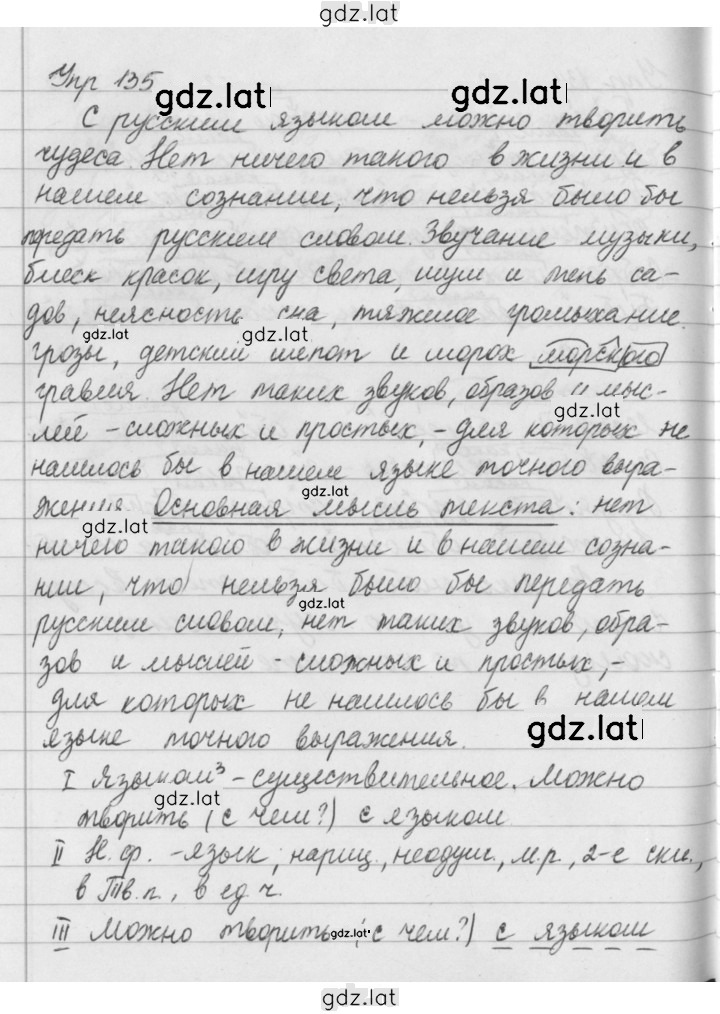 gdz.lat
Упр 135
gdz.lat gdz.lat
С русским языком можно творить
чудеса. Нет ничего такого в жизни и в
нашем сознании, что нельзя было бы
передать русским словом. Звучание музыки,
блеск красок, игру света, шум и тень са-
дов, неясность сна, тяжкое громыхание
gdz.lat gdz.lat
грозы, детский шепот и шорох морского
гравия. Нет таких звуков, образов и мыс-
gdz.lat
лей - сложных и простых, - для которых не
нашлось бы в нашем языке точного выра-
gdz.lat
жения. Основная мысль текста: нет
gdz.lat
ничего такого в жизни и в нашем созна-
нии, что нельзя было бы передать
gdz.lat
русским словом, нет таких звуков, обра-
зов и мыслей - сложных и простых, -
для которых не нашлось бы в нашем
gdz.lat
языке точного выражения.
I Языком³ - существительное. Можно
gdz.lat
творить (с чем?) с языком
II Н.ф. - язык, нариц., неодуш., м.р., 2-е скл.,
в Тв.п., в ед.ч.
III Можно творить (с чем?) с языком
gdz.lat
gdz.lat